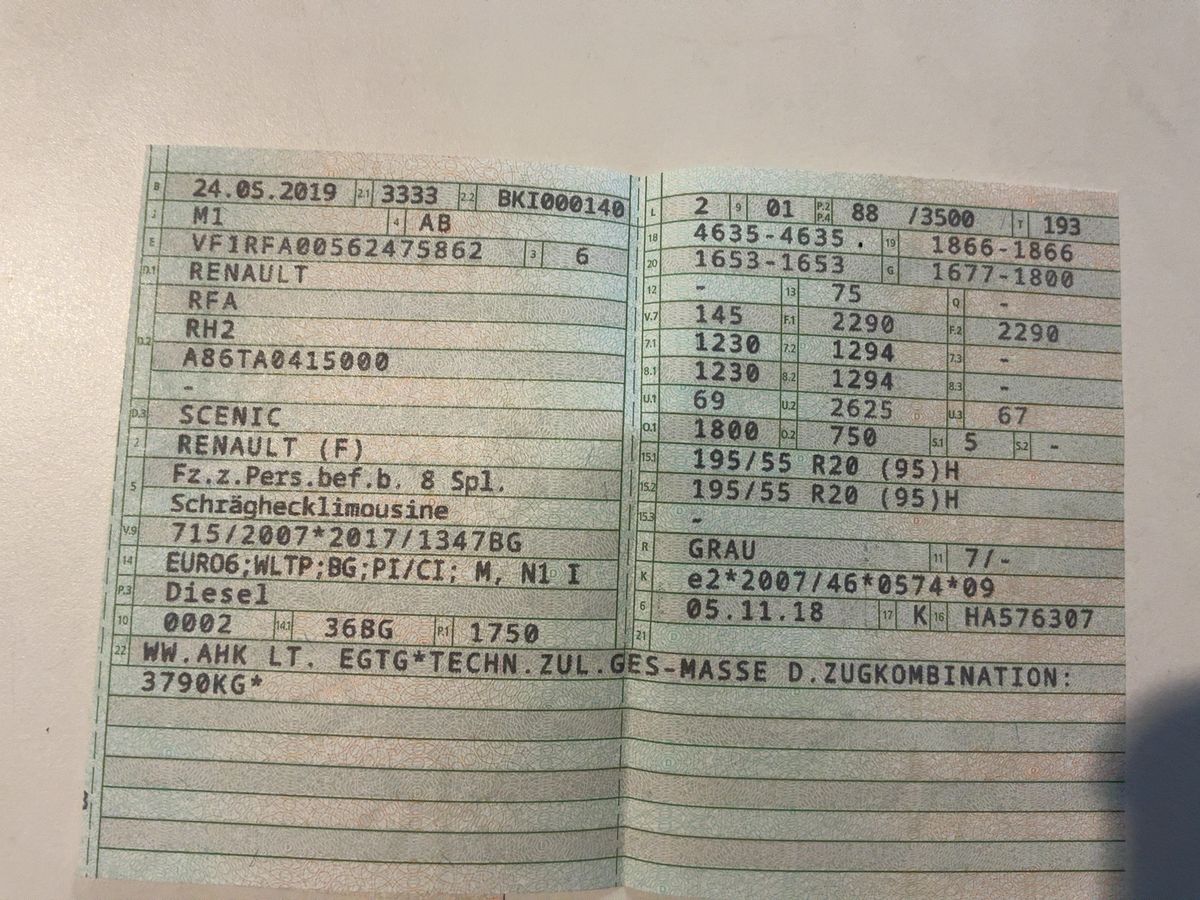 B 24.05.2019 2.1 3333 2.2 BKI000140
J M1 4 AB
E VF1RFA00562475862 3 6
D.1 RENAULT
RFA
D.2 RH2
A86TA0415000
-
D.3 SCENIC
2 RENAULT (F)
5 Fz.z.Pers.bef.b. 8 Spl.
Schräghecklimousine
V.9 715/2007*2017/1347BG
14 EURO6;WLTP;BG;PI/CI; M, N1 I
P.3 Diesel
10 0002 14.1 36BG P.1 1750
L 2 9 01 P.2 P.4 88 /3500 T 193
18 4635-4635 . 19 1866-1866
20 1653-1653 G 1677-1800
12 - 13 75 Q -
V.7 145 F.1 2290 F.2 2290
7.1 1230 7.2 1294 7.3 -
8.1 1230 8.2 1294 8.3 -
U.1 69 U.2 2625 U.3 67
O.1 1800 O.2 750 S.1 5 S.2 -
15.1 195/55 R20 (95)H
15.2 195/55 R20 (95)H
15.3 -
R GRAU 11 7/-
K e2*2007/46*0574*09
6 05.11.18 17 K 16 HA576307
21
22 WW.AHK LT. EGTG*TECHN.ZUL.GES-MASSE D.ZUGKOMBINATION:
3790KG*